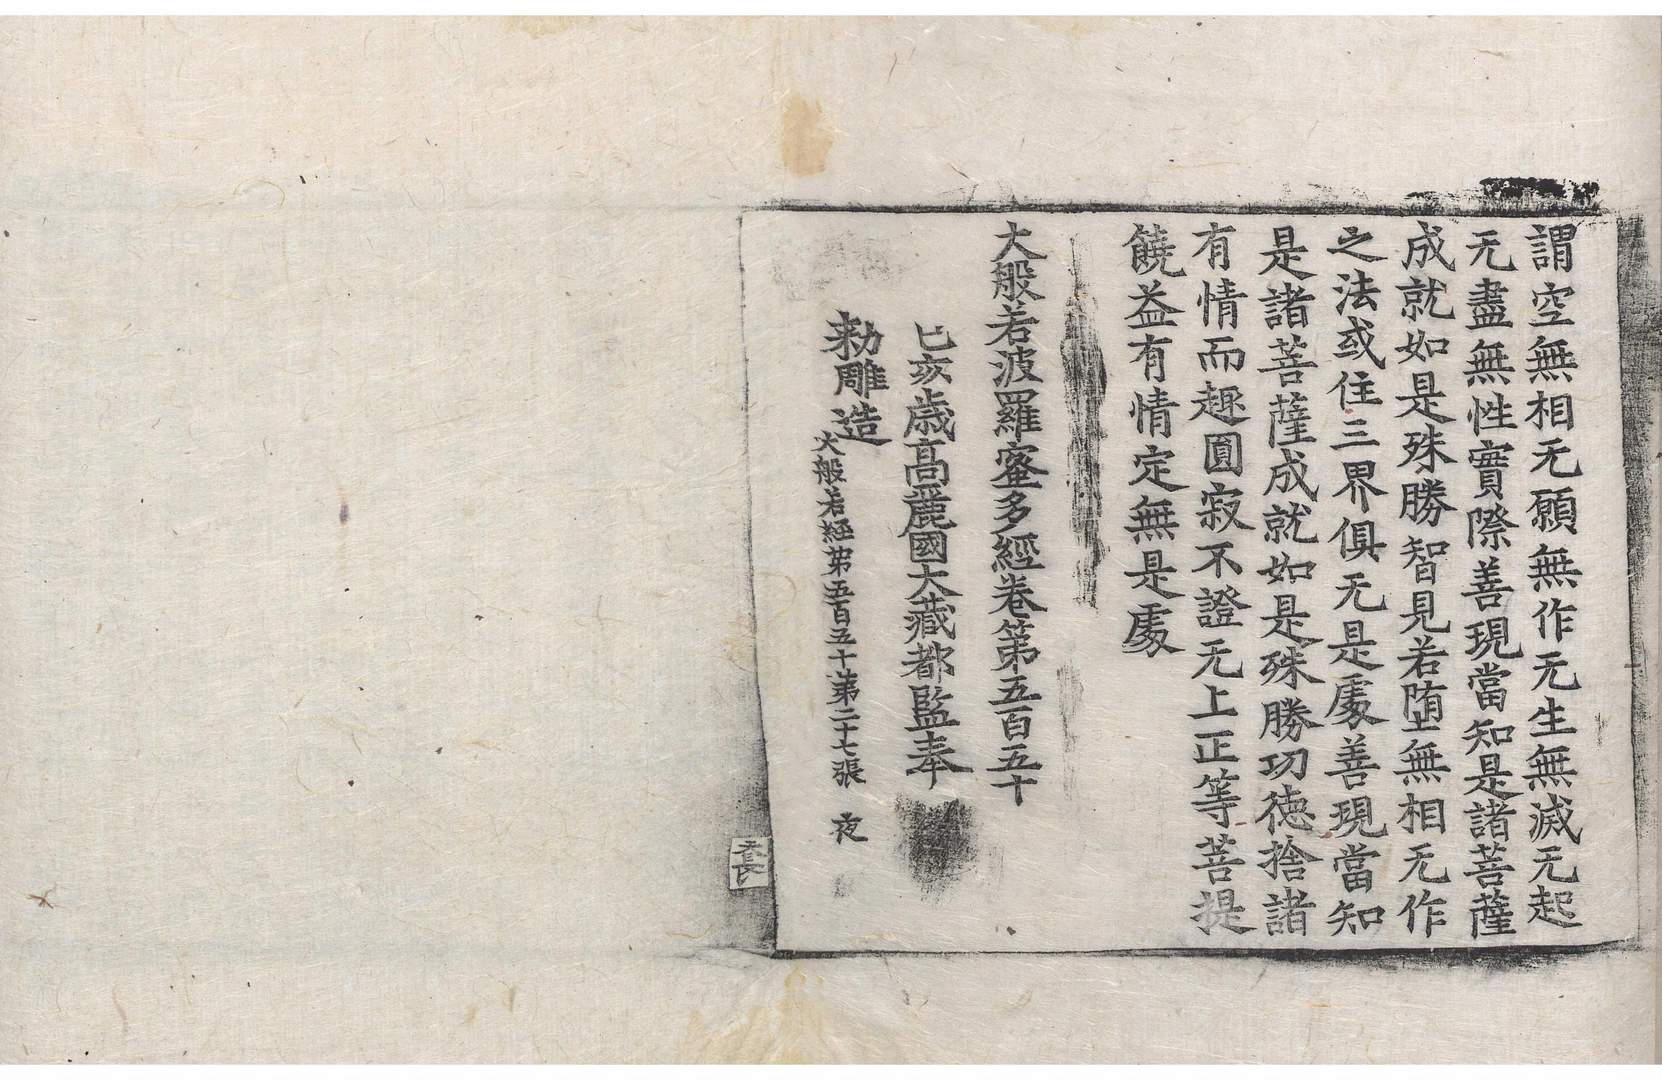 謂空無相无願無作无生無滅无起
无盡無性實際善現當知是諸菩薩
成就如是殊勝智見若堕無相无作
之法或住三界俱无是處善現當知
是諸菩薩成就如是殊勝功德捨諸
有情而趣圓寂不證无上正等菩提
饒益有情定無是處
大般若波羅蜜多經卷第五百五十
己亥歳高麗國大藏都監奉
勑雕造
大般若経苐五百五十第二十七張 夜
天長